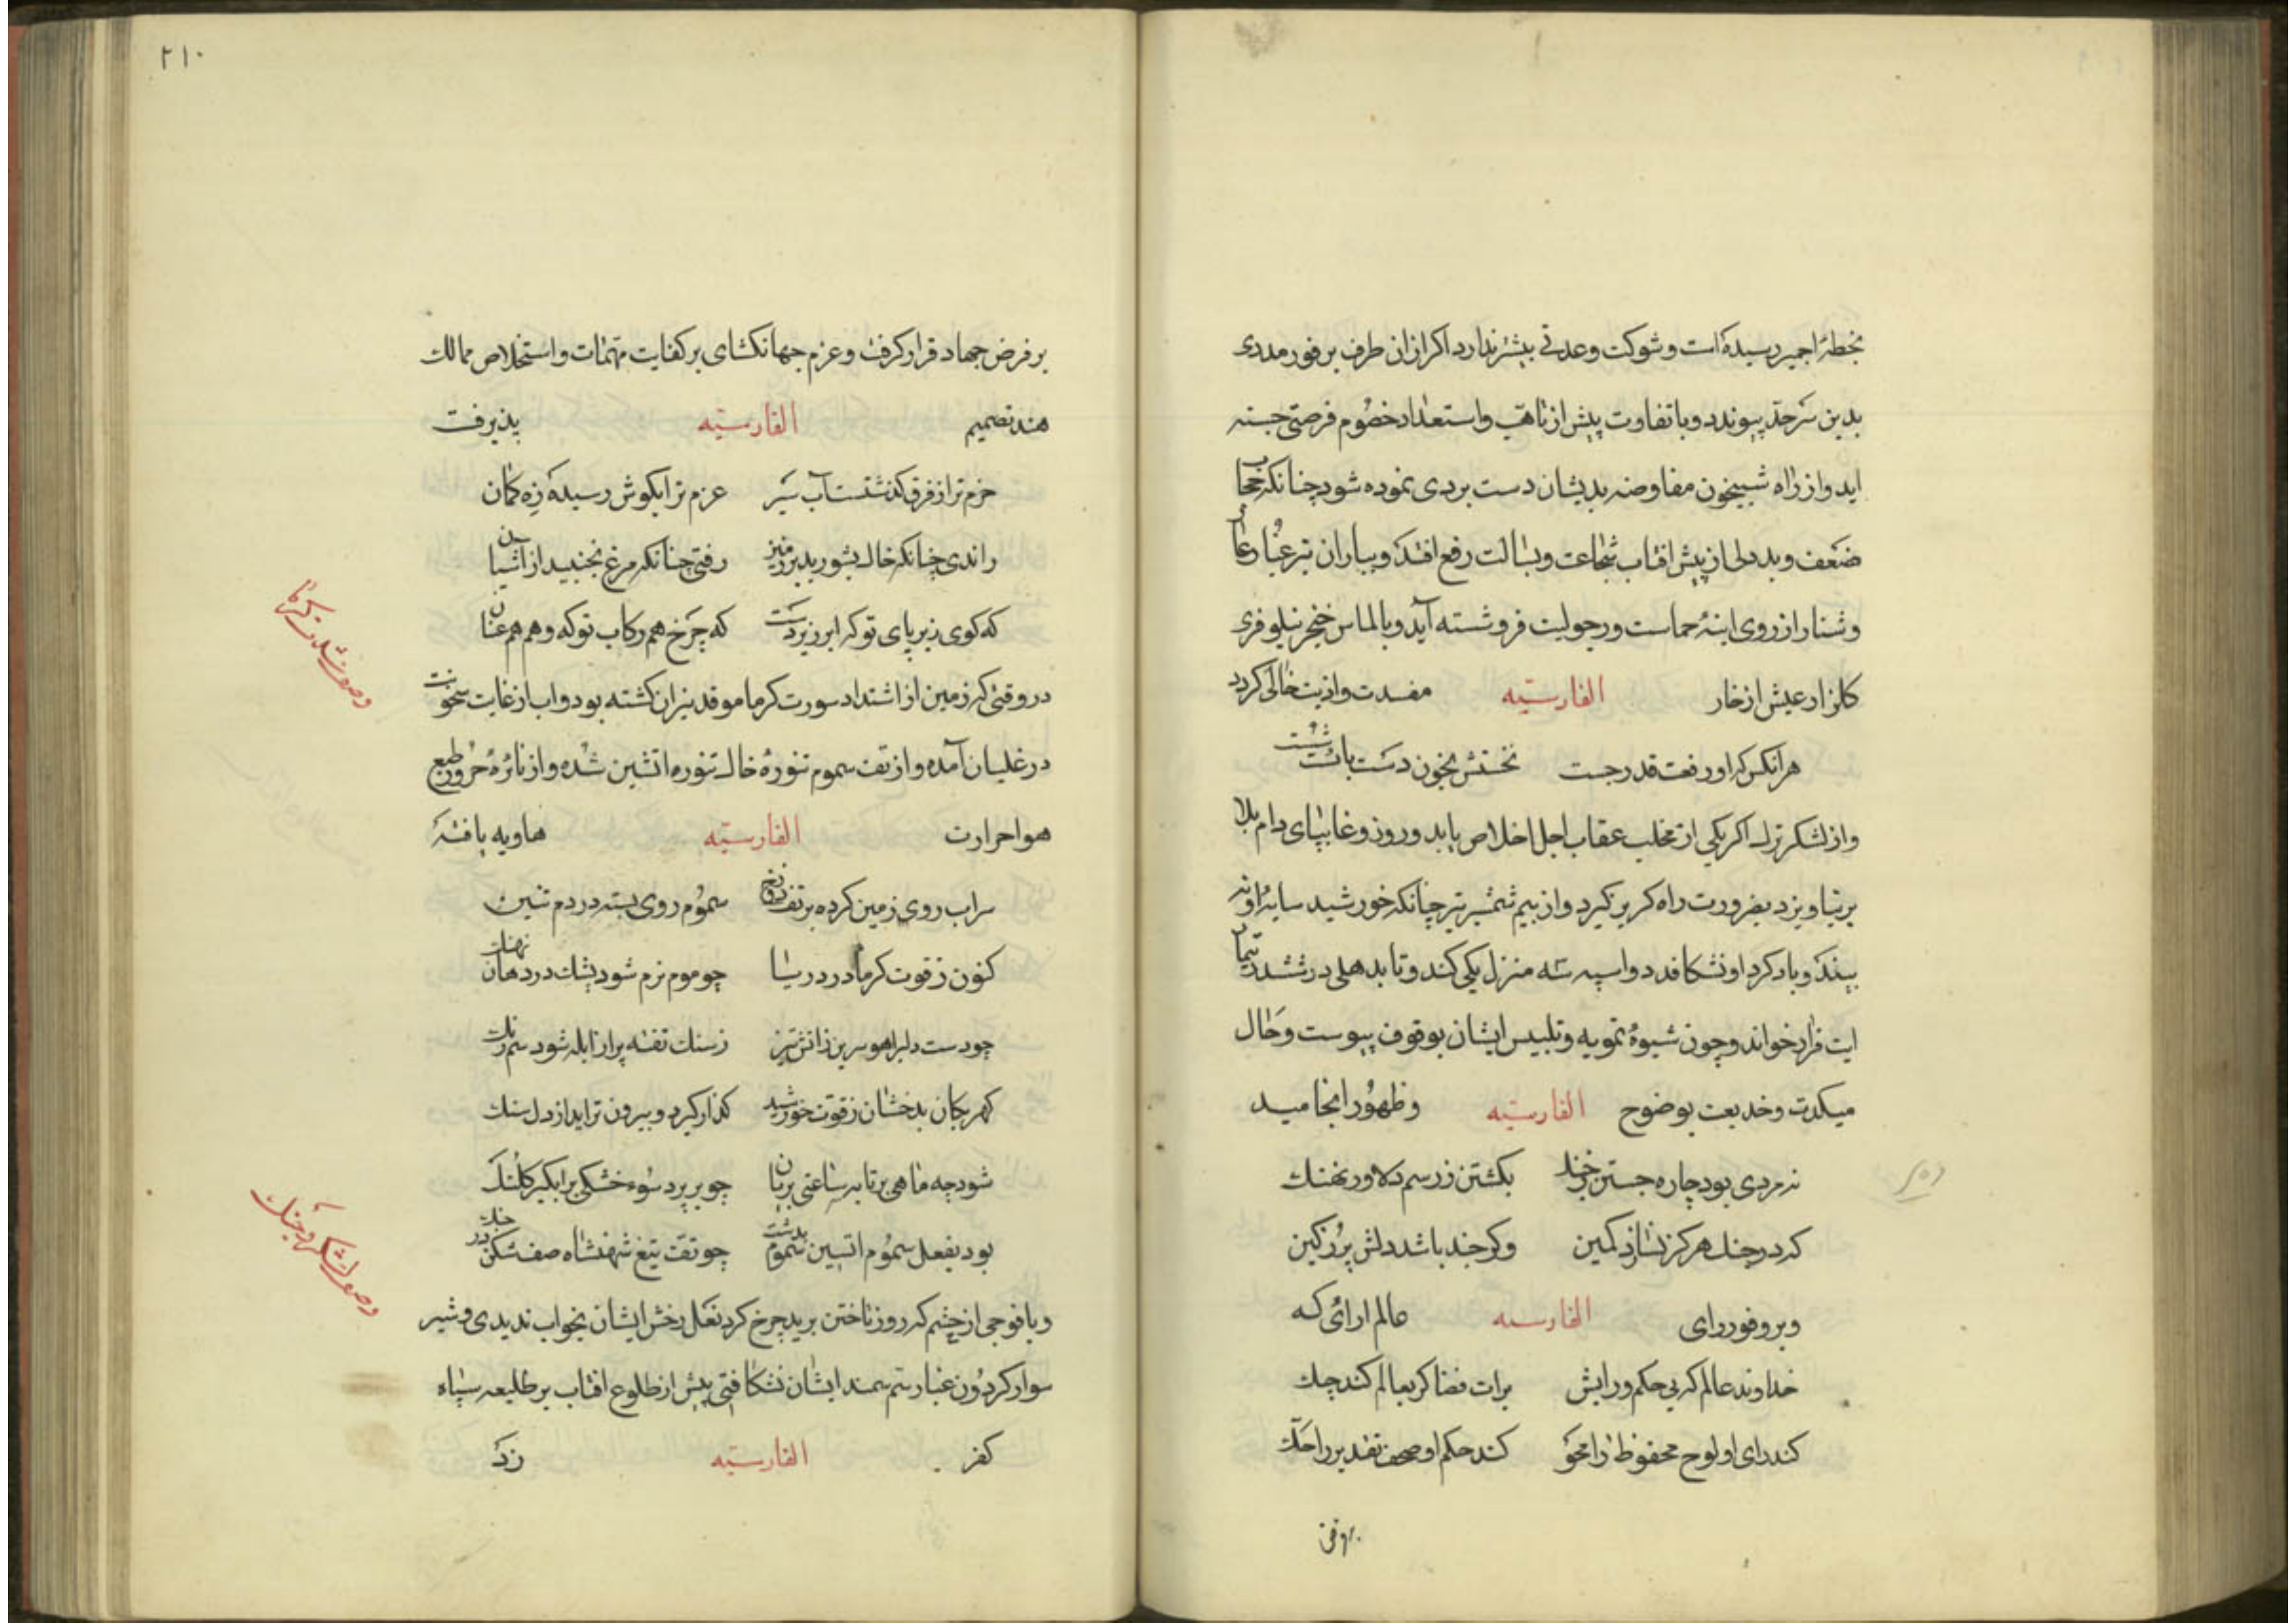 بخطهٔ اجمیر رسیده است و شوکت و عدتی بیشتر ندارد اکر ازان طرف بر فور مددی
بدین سرحد پیوندد و با تفاوت پیش از تاهب و استعداد خصوم فرصتی جسته
اید و از راه شبیخون مفاوضه بدیشان دست بردی نموده شود چنانکه حجاب
ضعف و بددلی از پیش افتاب شجاعت و بسالت رفع افتد و بباران تیر غبار عار
و شنار از روی اینهٔ حماست و رجولیت فرو شسته آید و بالماس خنجر نیلوفری
کلزار عیش از خار الفارسیه مفسدت و اذیت خالی کردد
هرانکس که او رفعت قدر جست نخستش بخون دست بایست شست
و از لشکر ترک اکر یکی از مخلب عقاب اجل اخلاص یابد و روز وغا بپای دام بلا
بر نیاویزد بضرورت راه کریز کیرد و از بیم شمشیر تیز چنانکه خورشید سایهٔ او نه
بیند و باد کرد او نشکافد دو اسپه سه منزل یکی کند و تا بدهلی در ششدر تیمار
ایت فرار خواند و چون شیوهٔ تمویه و تلبیس ایشان بوقوف پیوست و حال
میکدت و خدیعت بوضوح الفارسیه و ظهور انجامید
نه مردی بود چاره جستن بکشتن ز رسم دلاور نهنک
که در جنک هرکز نسازد کمین وکر چند باشد دلش پر ز کین
و بر وفور رای الفارسیه عالم ارائی که
خداوند عالم که بی حکم و رایش برات قضا کر بعالم کند چک
کند رای او لوح محفوظ را محو کند حکم او صحف تقدیر را حک
بر فرض
۲۱۰
بر فرض جهاد قرار کرفت و عزم جهانکشای بر کفایت مهمات و استخلاص ممالک
هند تصمیم الفارسیه پذیرفت
حزم ترا ز فرق کذشتست آب سیر عزم ترا بکوش رسیده زه کمان
راندی چنانکه خاک نشورید بر زمین رفتی چنانکه مرغ نجنبید از اشیان
که کوی زیر پای تو که ابر زیر دست که چرخ هم رکاب تو که وهم هم عنان
در وقتی که زمین از اشتداد سورت کرما موقد نیران کشته بود و اب از غایت سخونت
در غلیان آمده و از تف سموم تنورهٔ خاک تنوره اتشین شده و از نائرهٔ حرور طبع
هوا حرارت الفارسیه هاویه یافته
سراب روی زمین کرده بر تف دوزخ سموم روی بسته در دم تنین
کنون ز قوت کرما در دریا چو موم نرم شود پشک در دهان نهنک
چو دست دلبر اهو سرین ز اتش تیز ز سنک تفته پر از ابله شود سم رنک
کهر بکان بدخشان ز قوت خورشید کذار کیرد و بیرون ترابد از دل سنک
شود چه ماهی بر تابه ساعتی بریان چو بر پرد سوء خشکی بر ابکیر کلنک
بود بفعل سموم اتشین بدشت سموم چو تف تیغ شهنشاه صف شکن در جنک
و با فوجی از حشم که روز تاختن برید چرخ کرد نعل رخش ایشان بخواب ندیدی و شیر
سوار کردون غبار سم سمند ایشان نشکافتی پیش از طلوع افتاب بر طلیعه سپاه
کفر الفارسیه زد
وصف شدت کرما
وصف لشکر و جنک